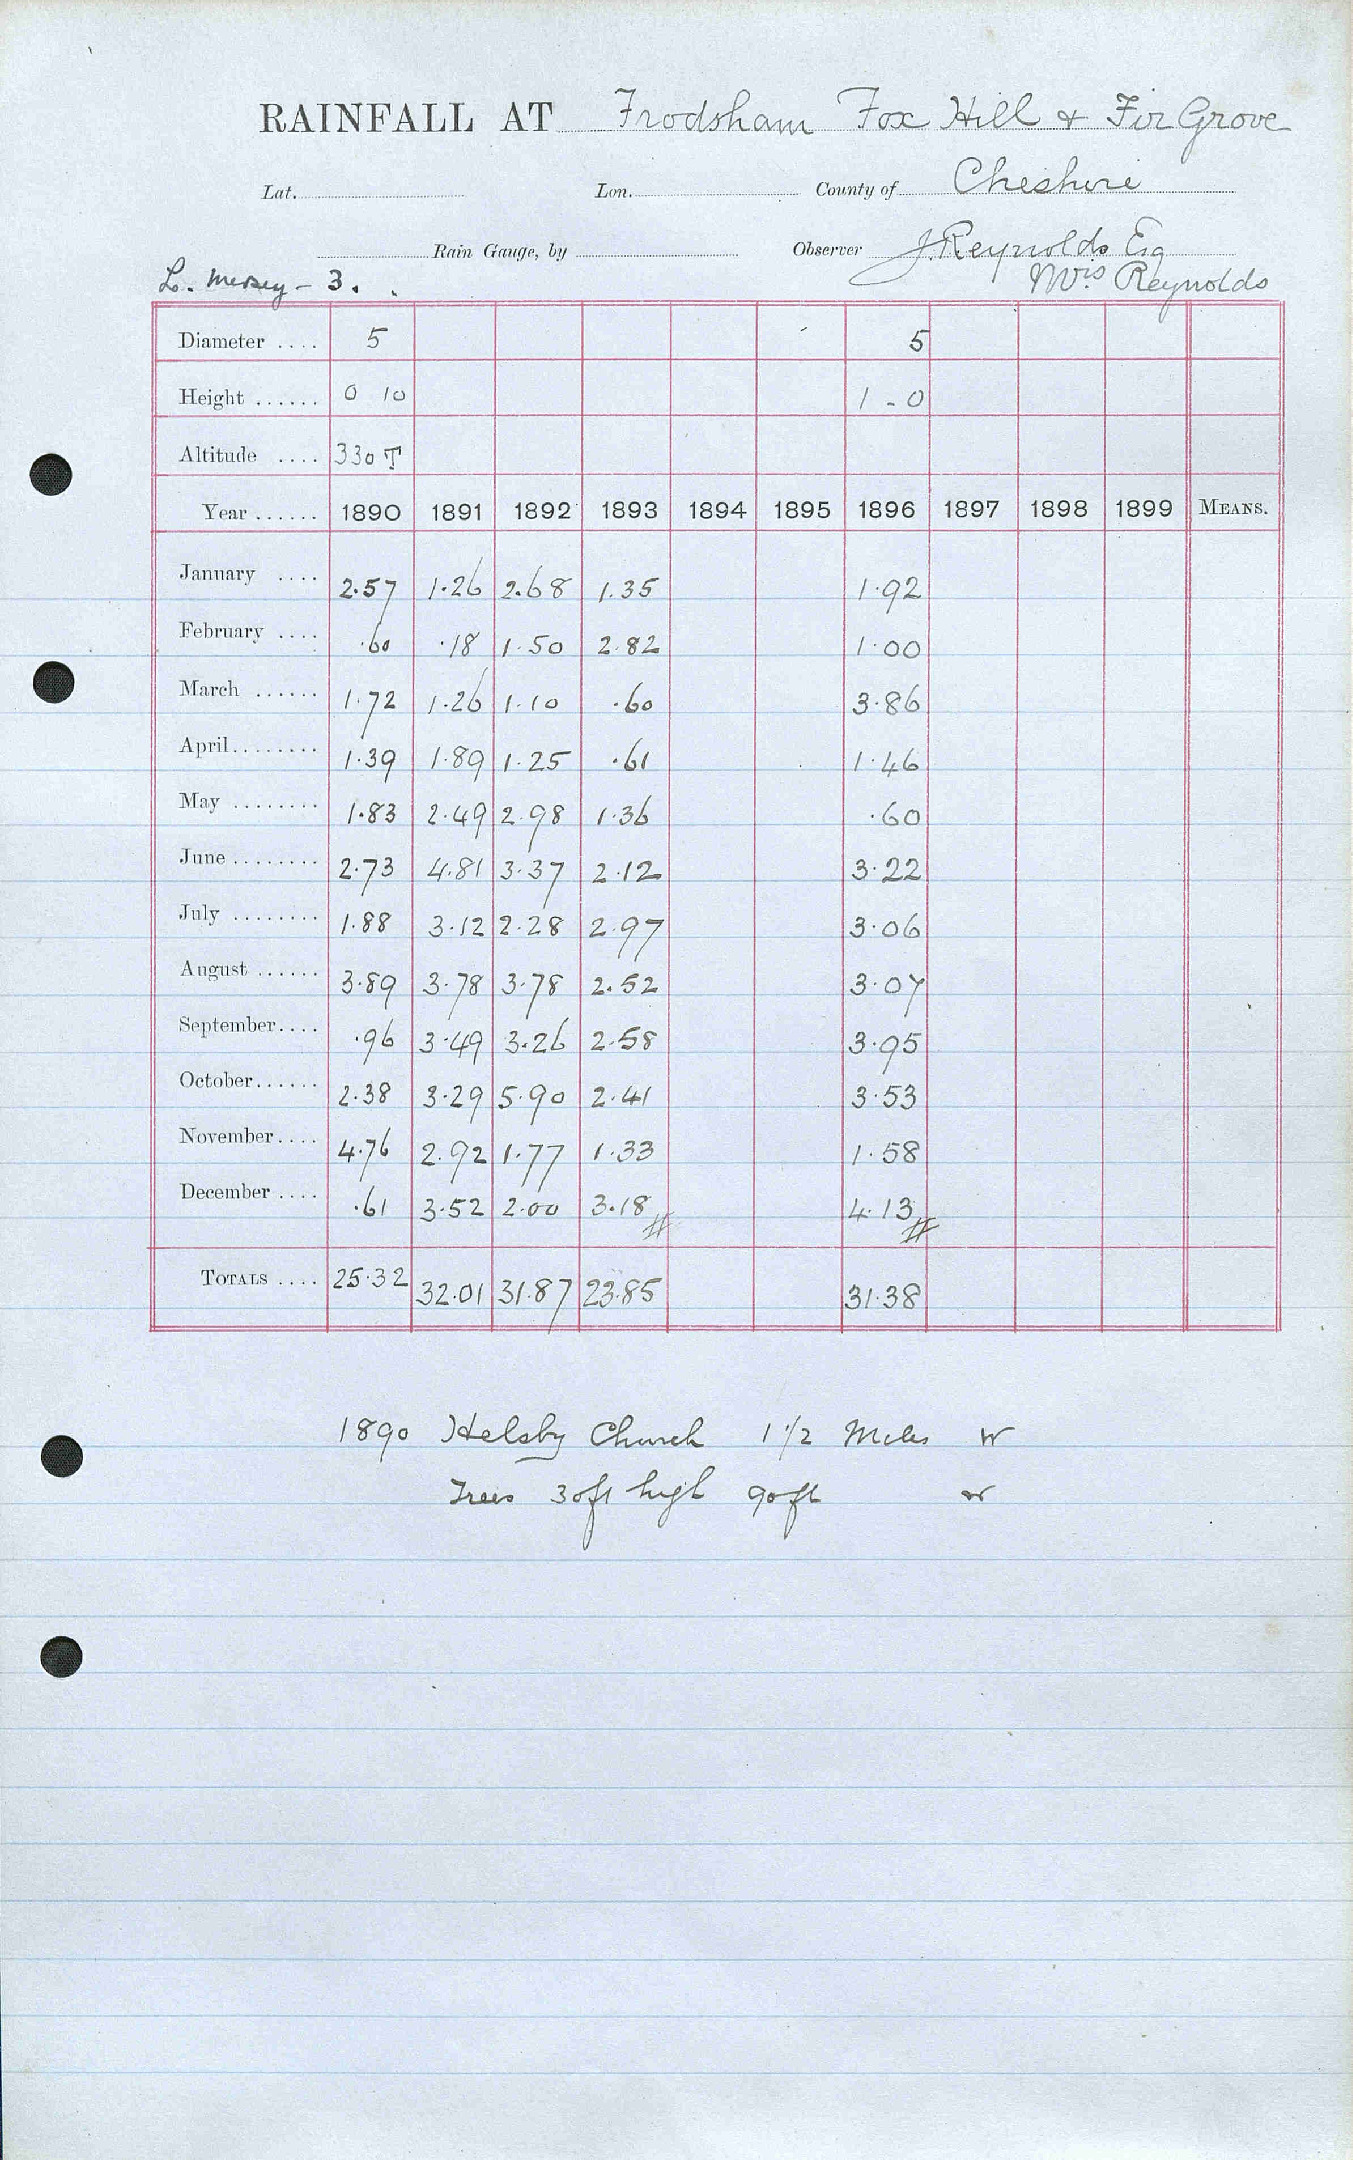 RAINFALL AT Frodsham Fox Hill & Fir Grove
Lat. Lon. County of Cheshire
Rain Gauge, by Observer J. Reynolds Esq
L. Mersey - 3. Mrs Reynolds
Diameter .... 5 5
Height ...... 0 10 1 - 0
Altitude .... 330 T
Year ...... 1890 1891 1892 1893 1894 1895 1896 1897 1898 1899 MEANS.
January .... 2.57 1.26 2.68 1.35 1.92
February .... .60 .18 1.50 2.82 1.00
March ...... 1.72 1.26 1.10 .60 3.86
April........ 1.39 1.89 1.25 .61 1.46
May ........ 1.83 2.49 2.98 1.36 .60
June ........ 2.73 4.81 3.37 2.12 3.22
July ........ 1.88 3.12 2.28 2.97 3.06
August ...... 3.89 3.78 3.78 2.52 3.07
September.... .96 3.49 3.26 2.58 3.95
October...... 2.38 3.29 5.90 2.41 3.53
November.... 4.76 2.92 1.77 1.33 1.58
December .... .61 3.52 2.00 3.18 4.13
TOTALS .... 25.32 32.01 31.87 23.85 31.38
1890 Helsby Church 1 1/2 Miles W
Trees 30ft high 90ft W